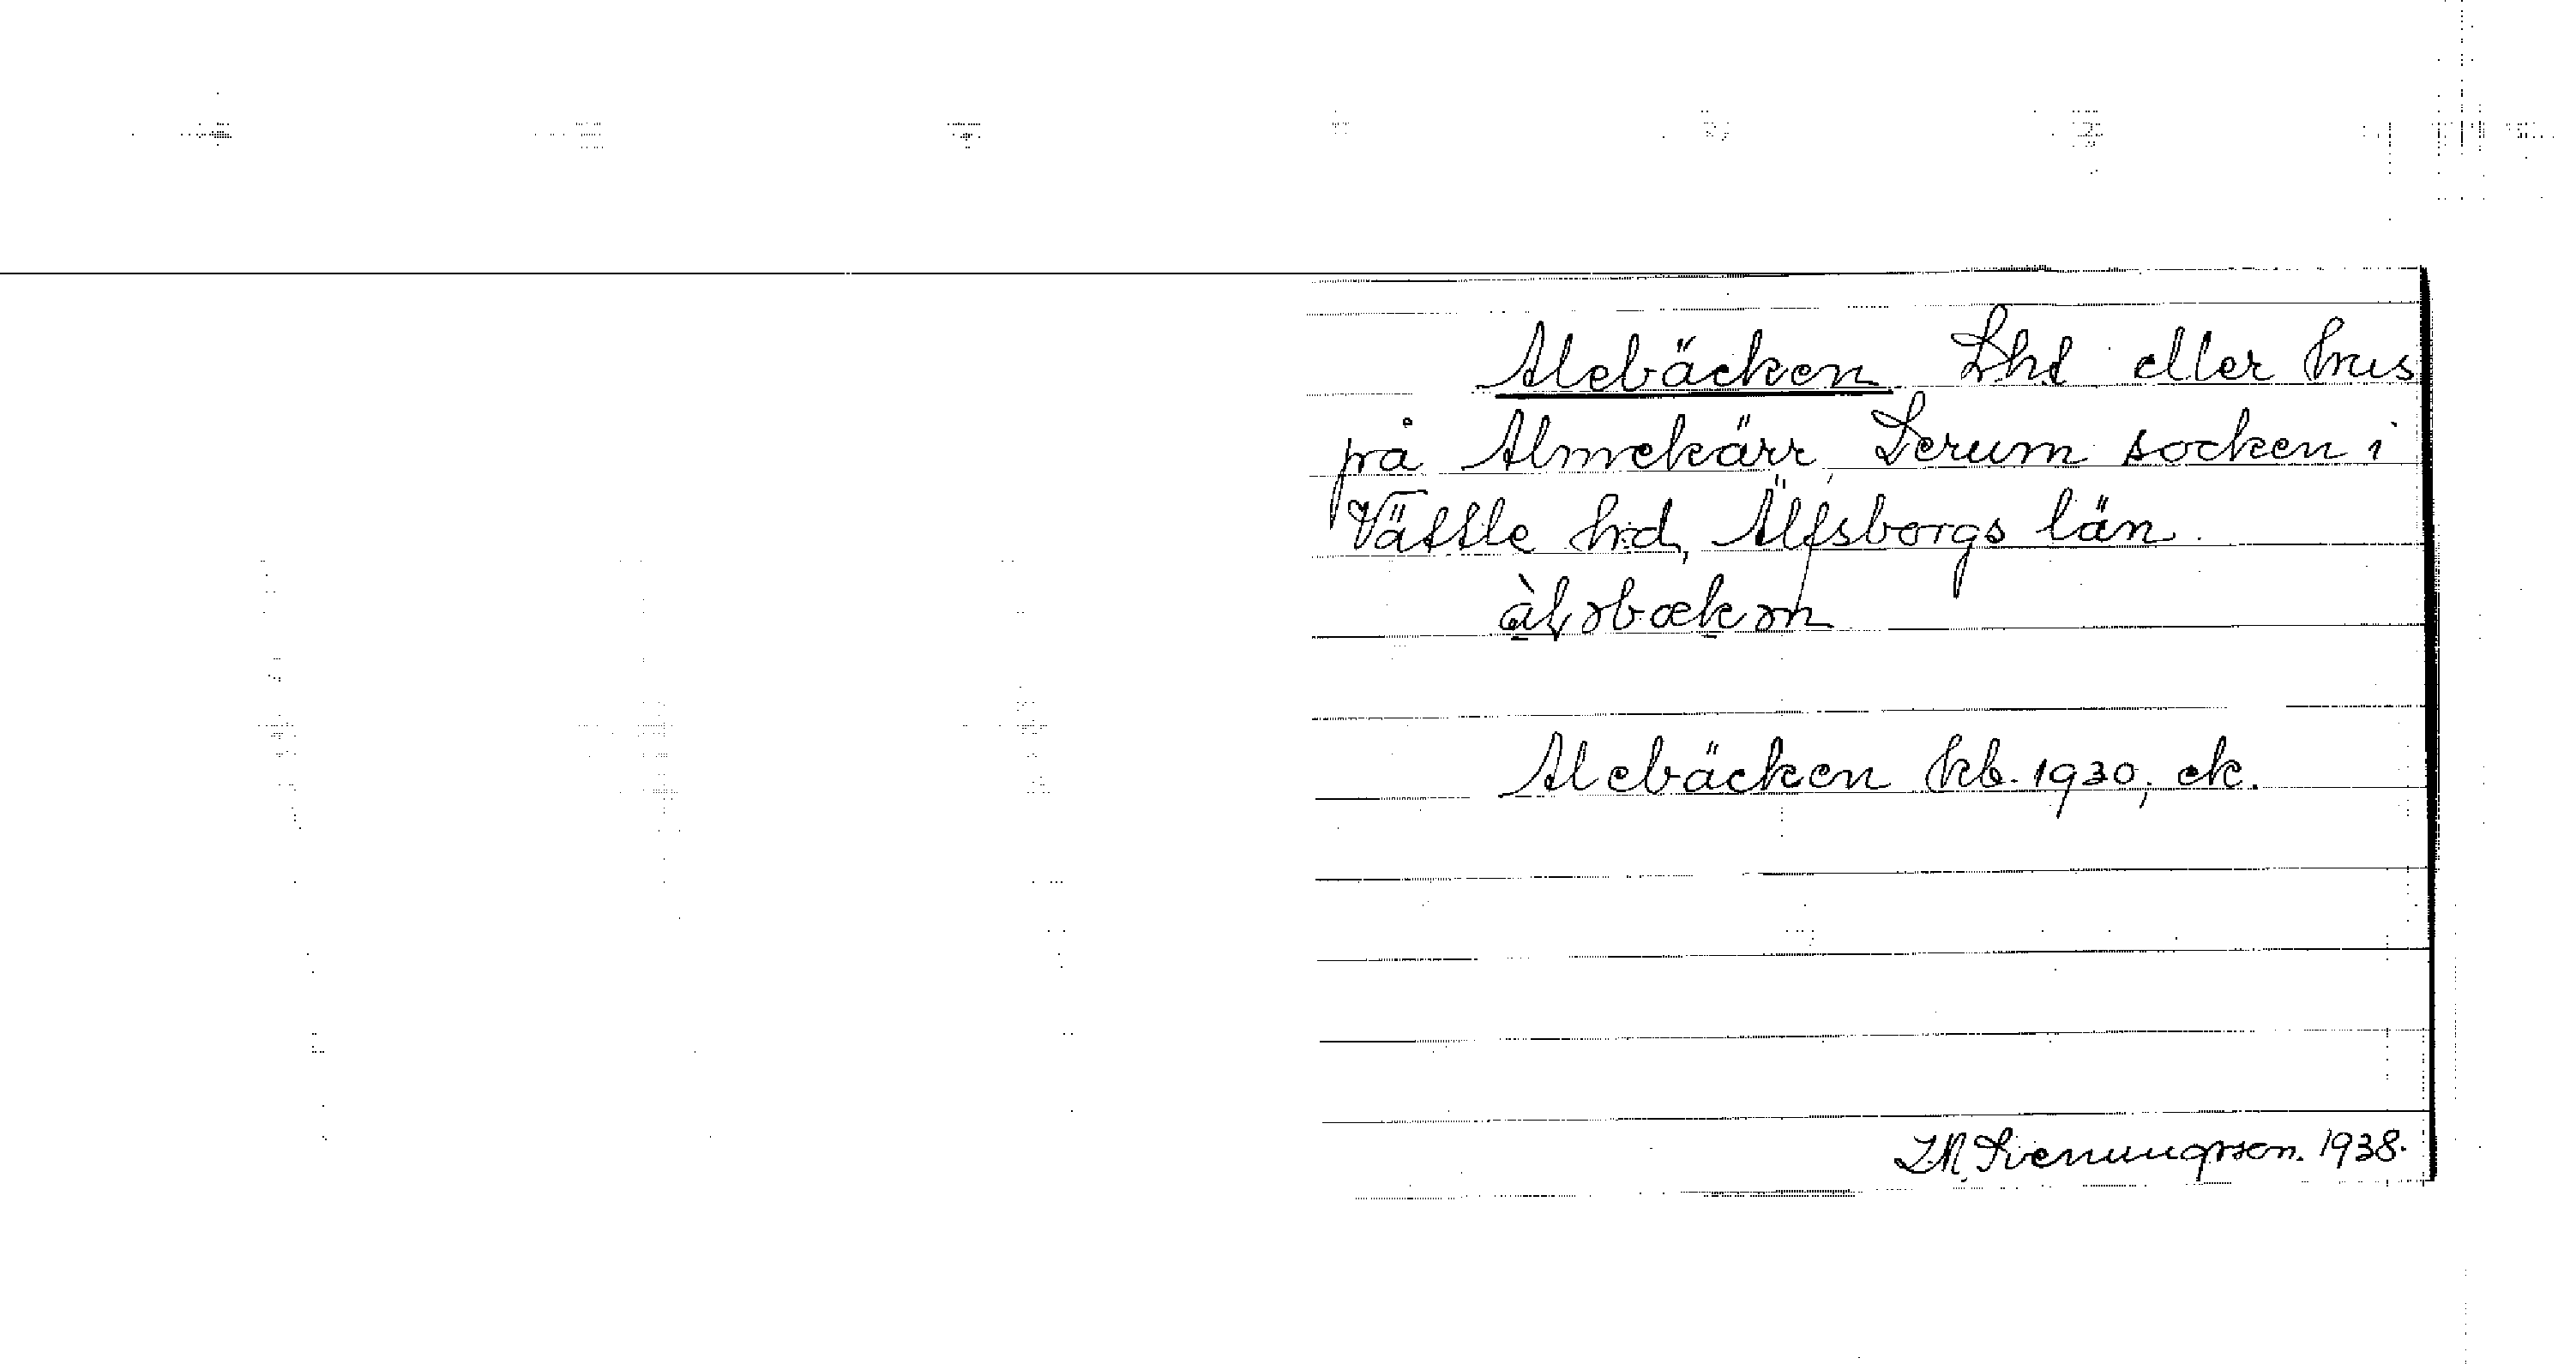 Alebäcken Lht eller hus
på Almekärr, Lerum socken i
Vättle hd, Älfsborgs län.
Alebäcken kb. 1930, ek.
I.M. Svenungsson. 1938.